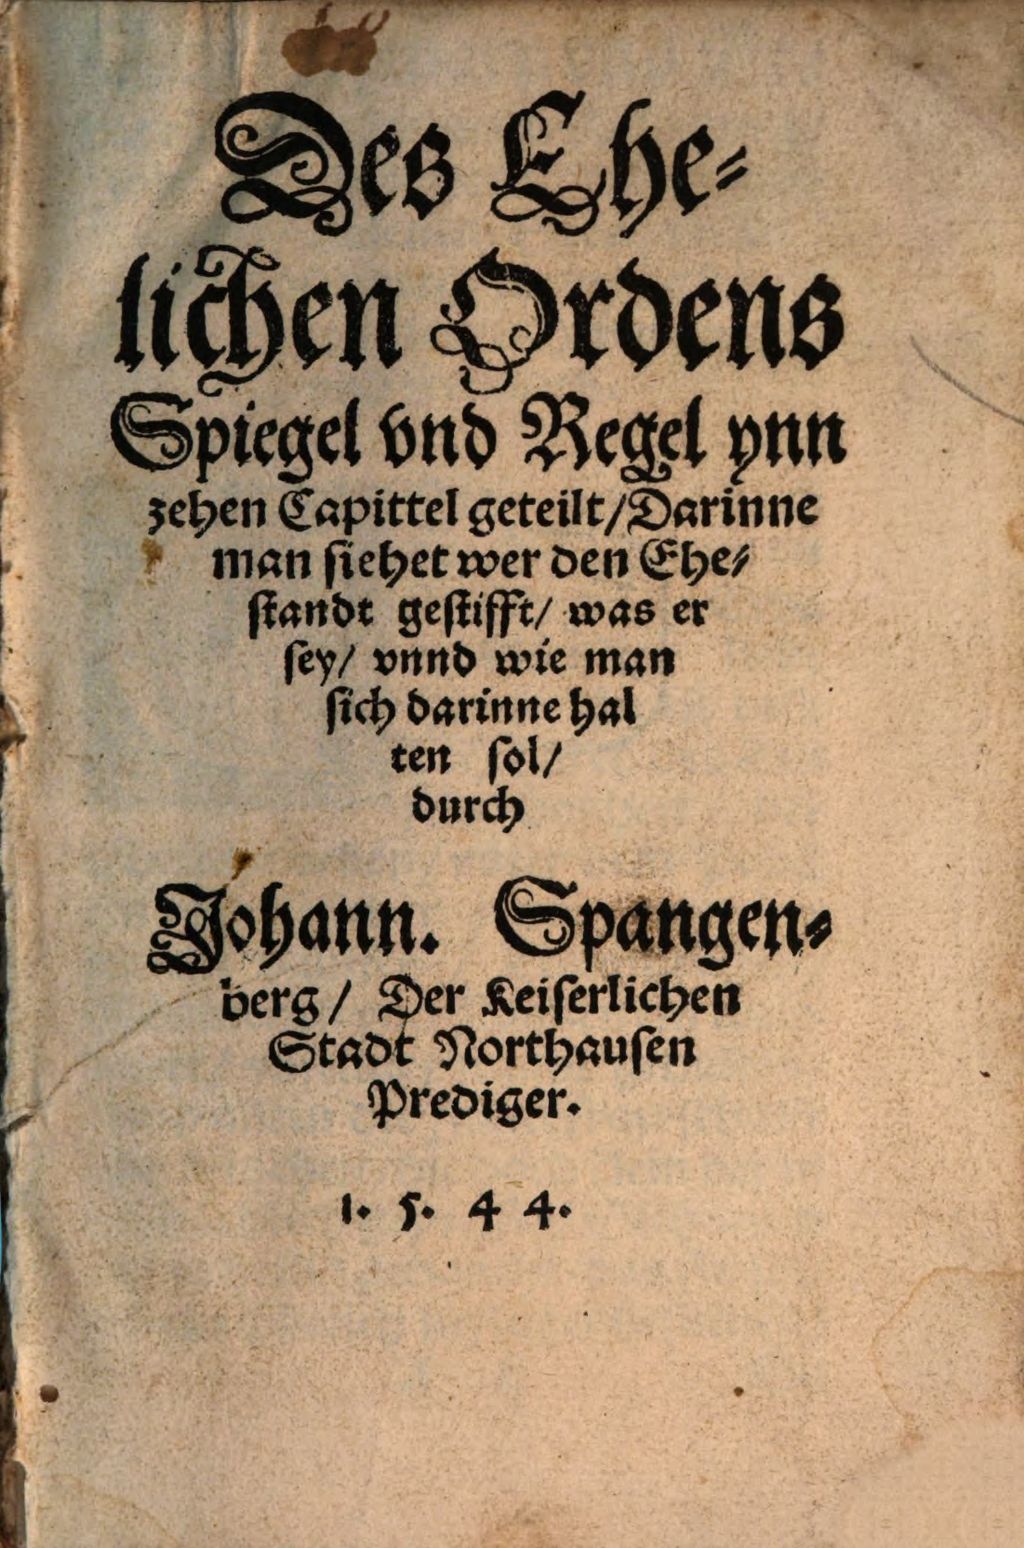 Des Ehe-
lichen Ordens
Spiegel vnd Regel ynn
zehen Capittel geteilt/Darinne
man siehet wer den Ehe-
standt gestifft/ was er
sey/ vnnd wie man
sich darinne hal
ten sol/
durch
Johann. Spangen-
berg/ Der Keiserlichen
Stadt Northausen
Prediger.
1. 5. 4 4.